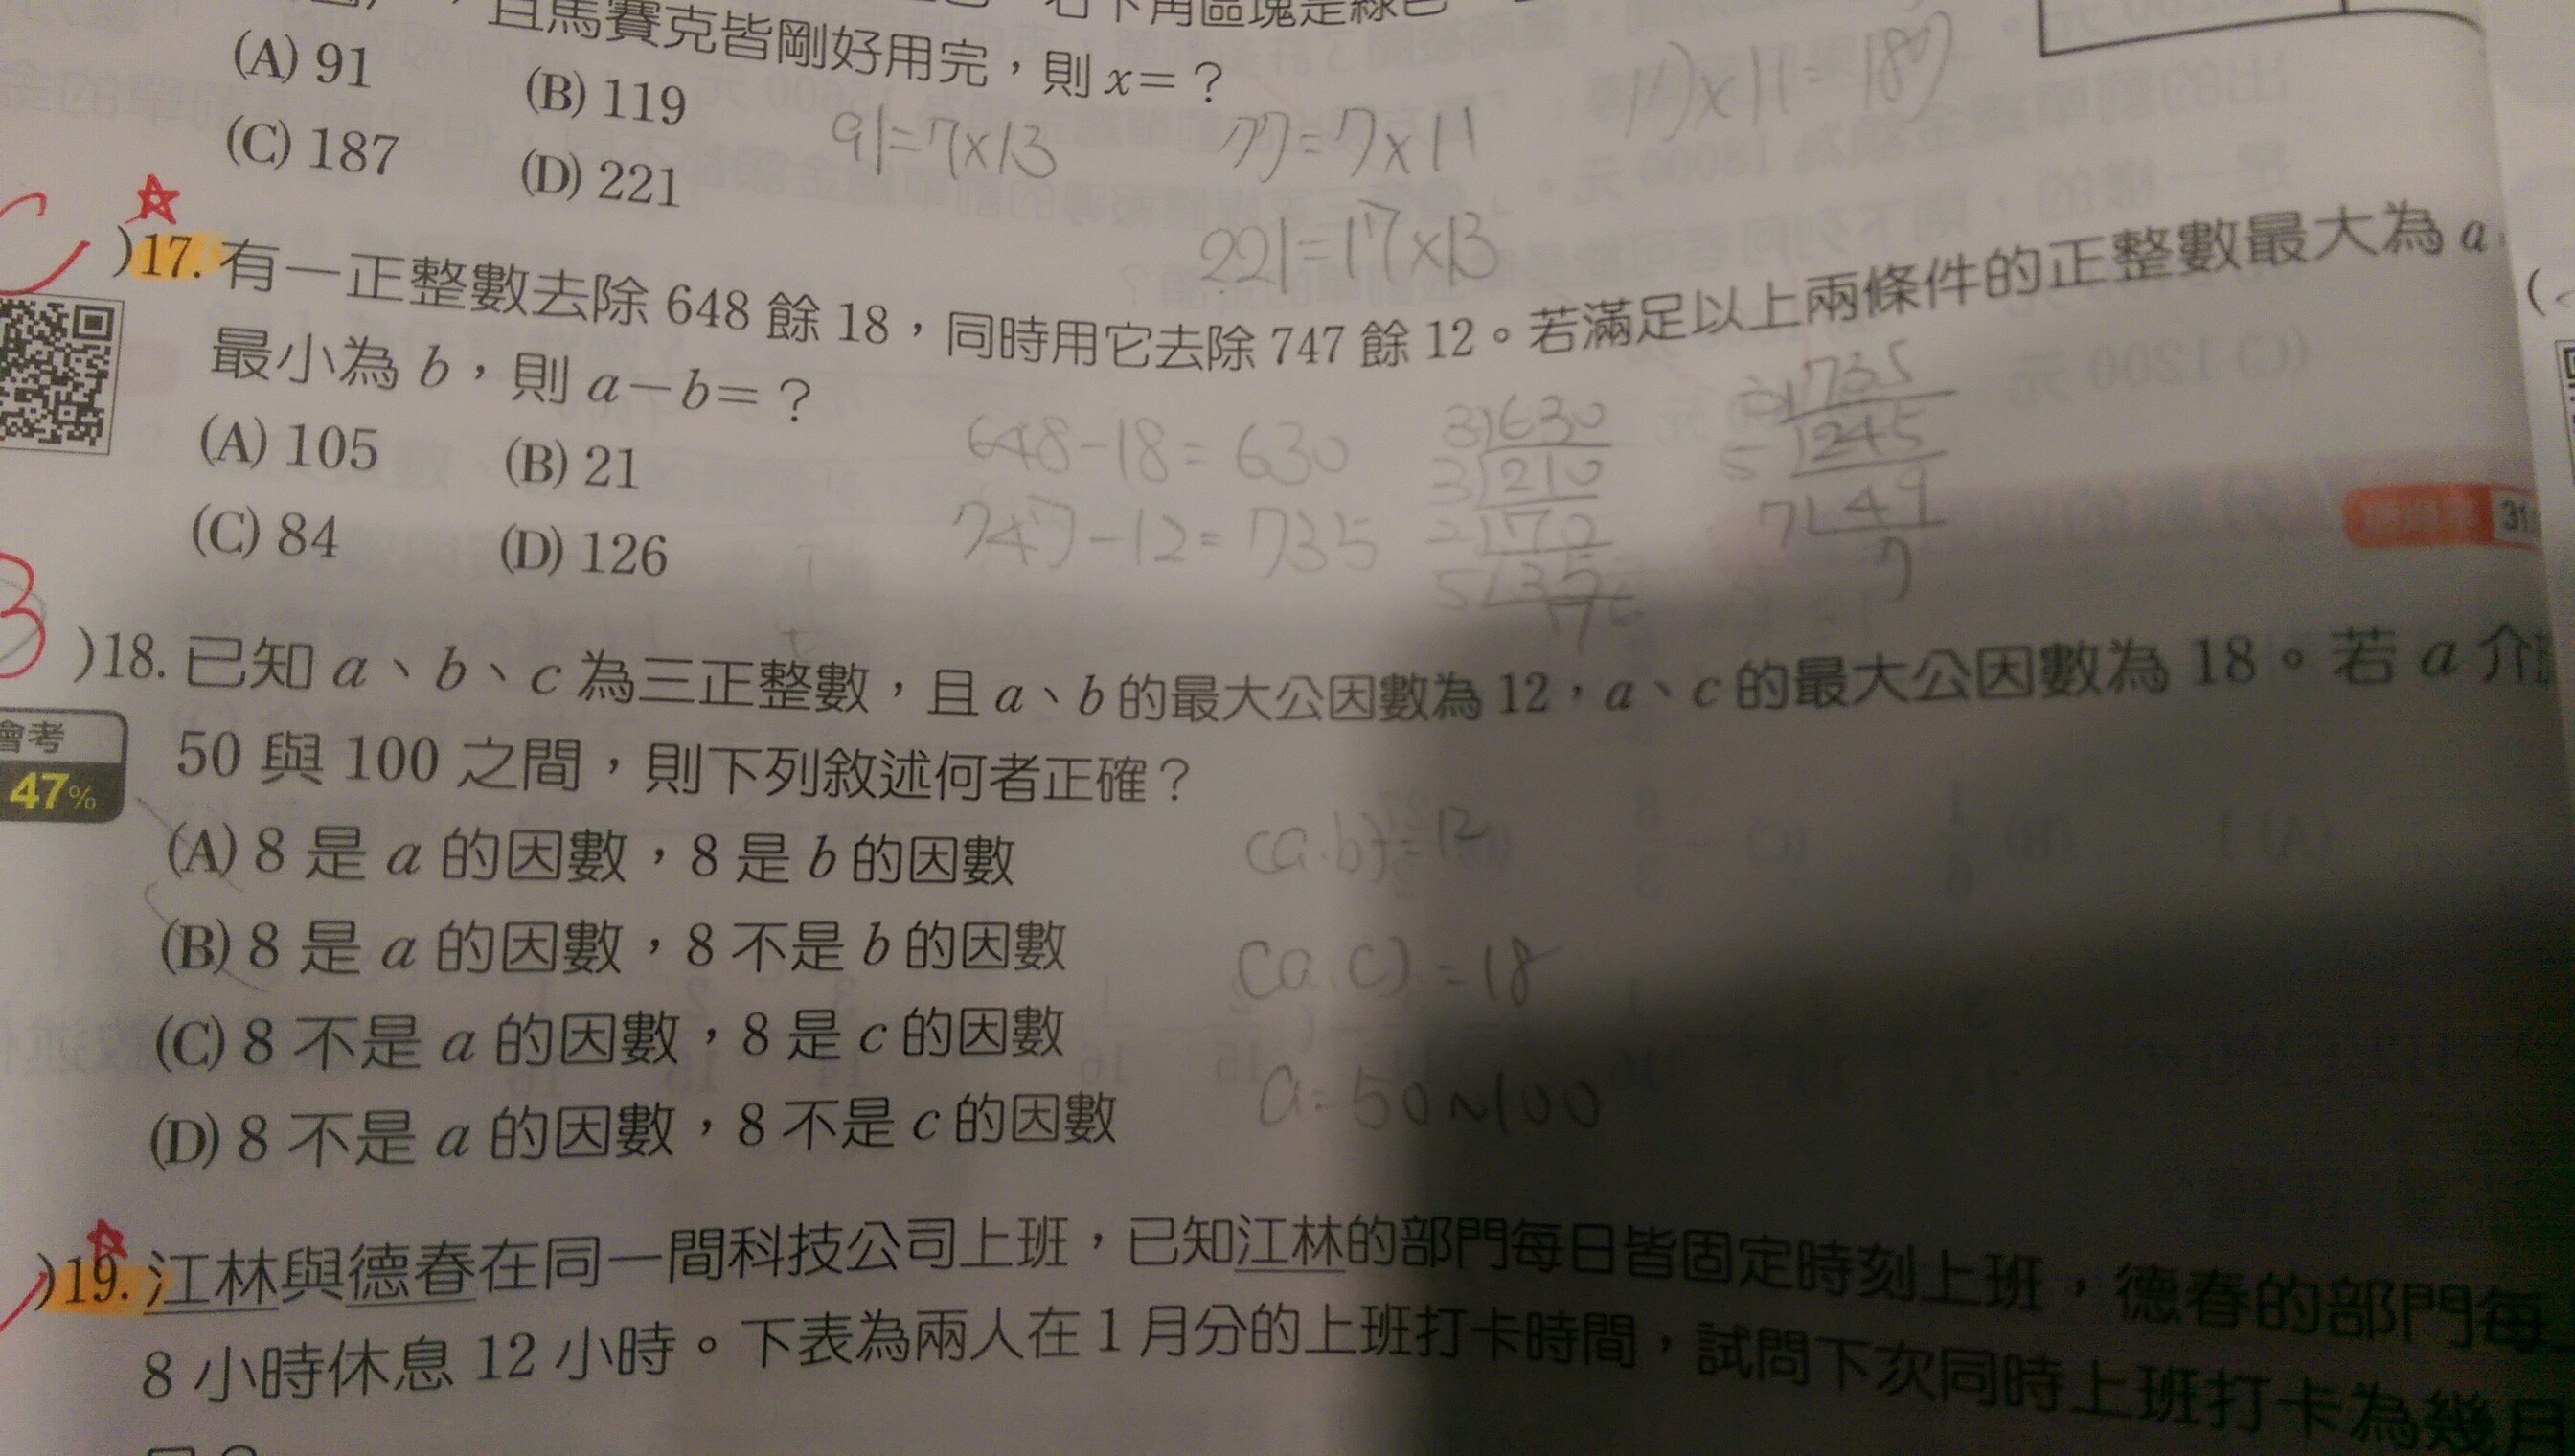 且馬賽克皆剛好用完,則 x=?
(A) 91 (B) 119
(C) 187 (D) 221
91=7×13 77=7×11 17×11=187
221=17×13
)17. 有一正整數去除 648 餘 18,同時用它去除 747 餘 12。若滿足以上兩條件的正整數最大為 a
最小為 b,則 a-b=?
(A) 105 (B) 21
(C) 84 (D) 126
648-18=630
747-12=735
3 630
3 210
2 70
5 35
7
735
5 245
7 49
7
)18. 已知 a、b、c 為三正整數,且 a、b 的最大公因數為 12,a、c 的最大公因數為 18。若 a 介
50 與 100 之間,則下列敘述何者正確?
會考
47%
(A) 8 是 a 的因數,8 是 b 的因數
(B) 8 是 a 的因數,8 不是 b 的因數
(C) 8 不是 a 的因數,8 是 c 的因數
(D) 8 不是 a 的因數,8 不是 c 的因數
(a.b)=12
(a.c)=18
a=50~100
)19. 江林與德春在同一間科技公司上班,已知江林的部門每日皆固定時刻上班,德春的部門每
8 小時休息 12 小時。下表為兩人在 1 月分的上班打卡時間,試問下次同時上班打卡為幾月